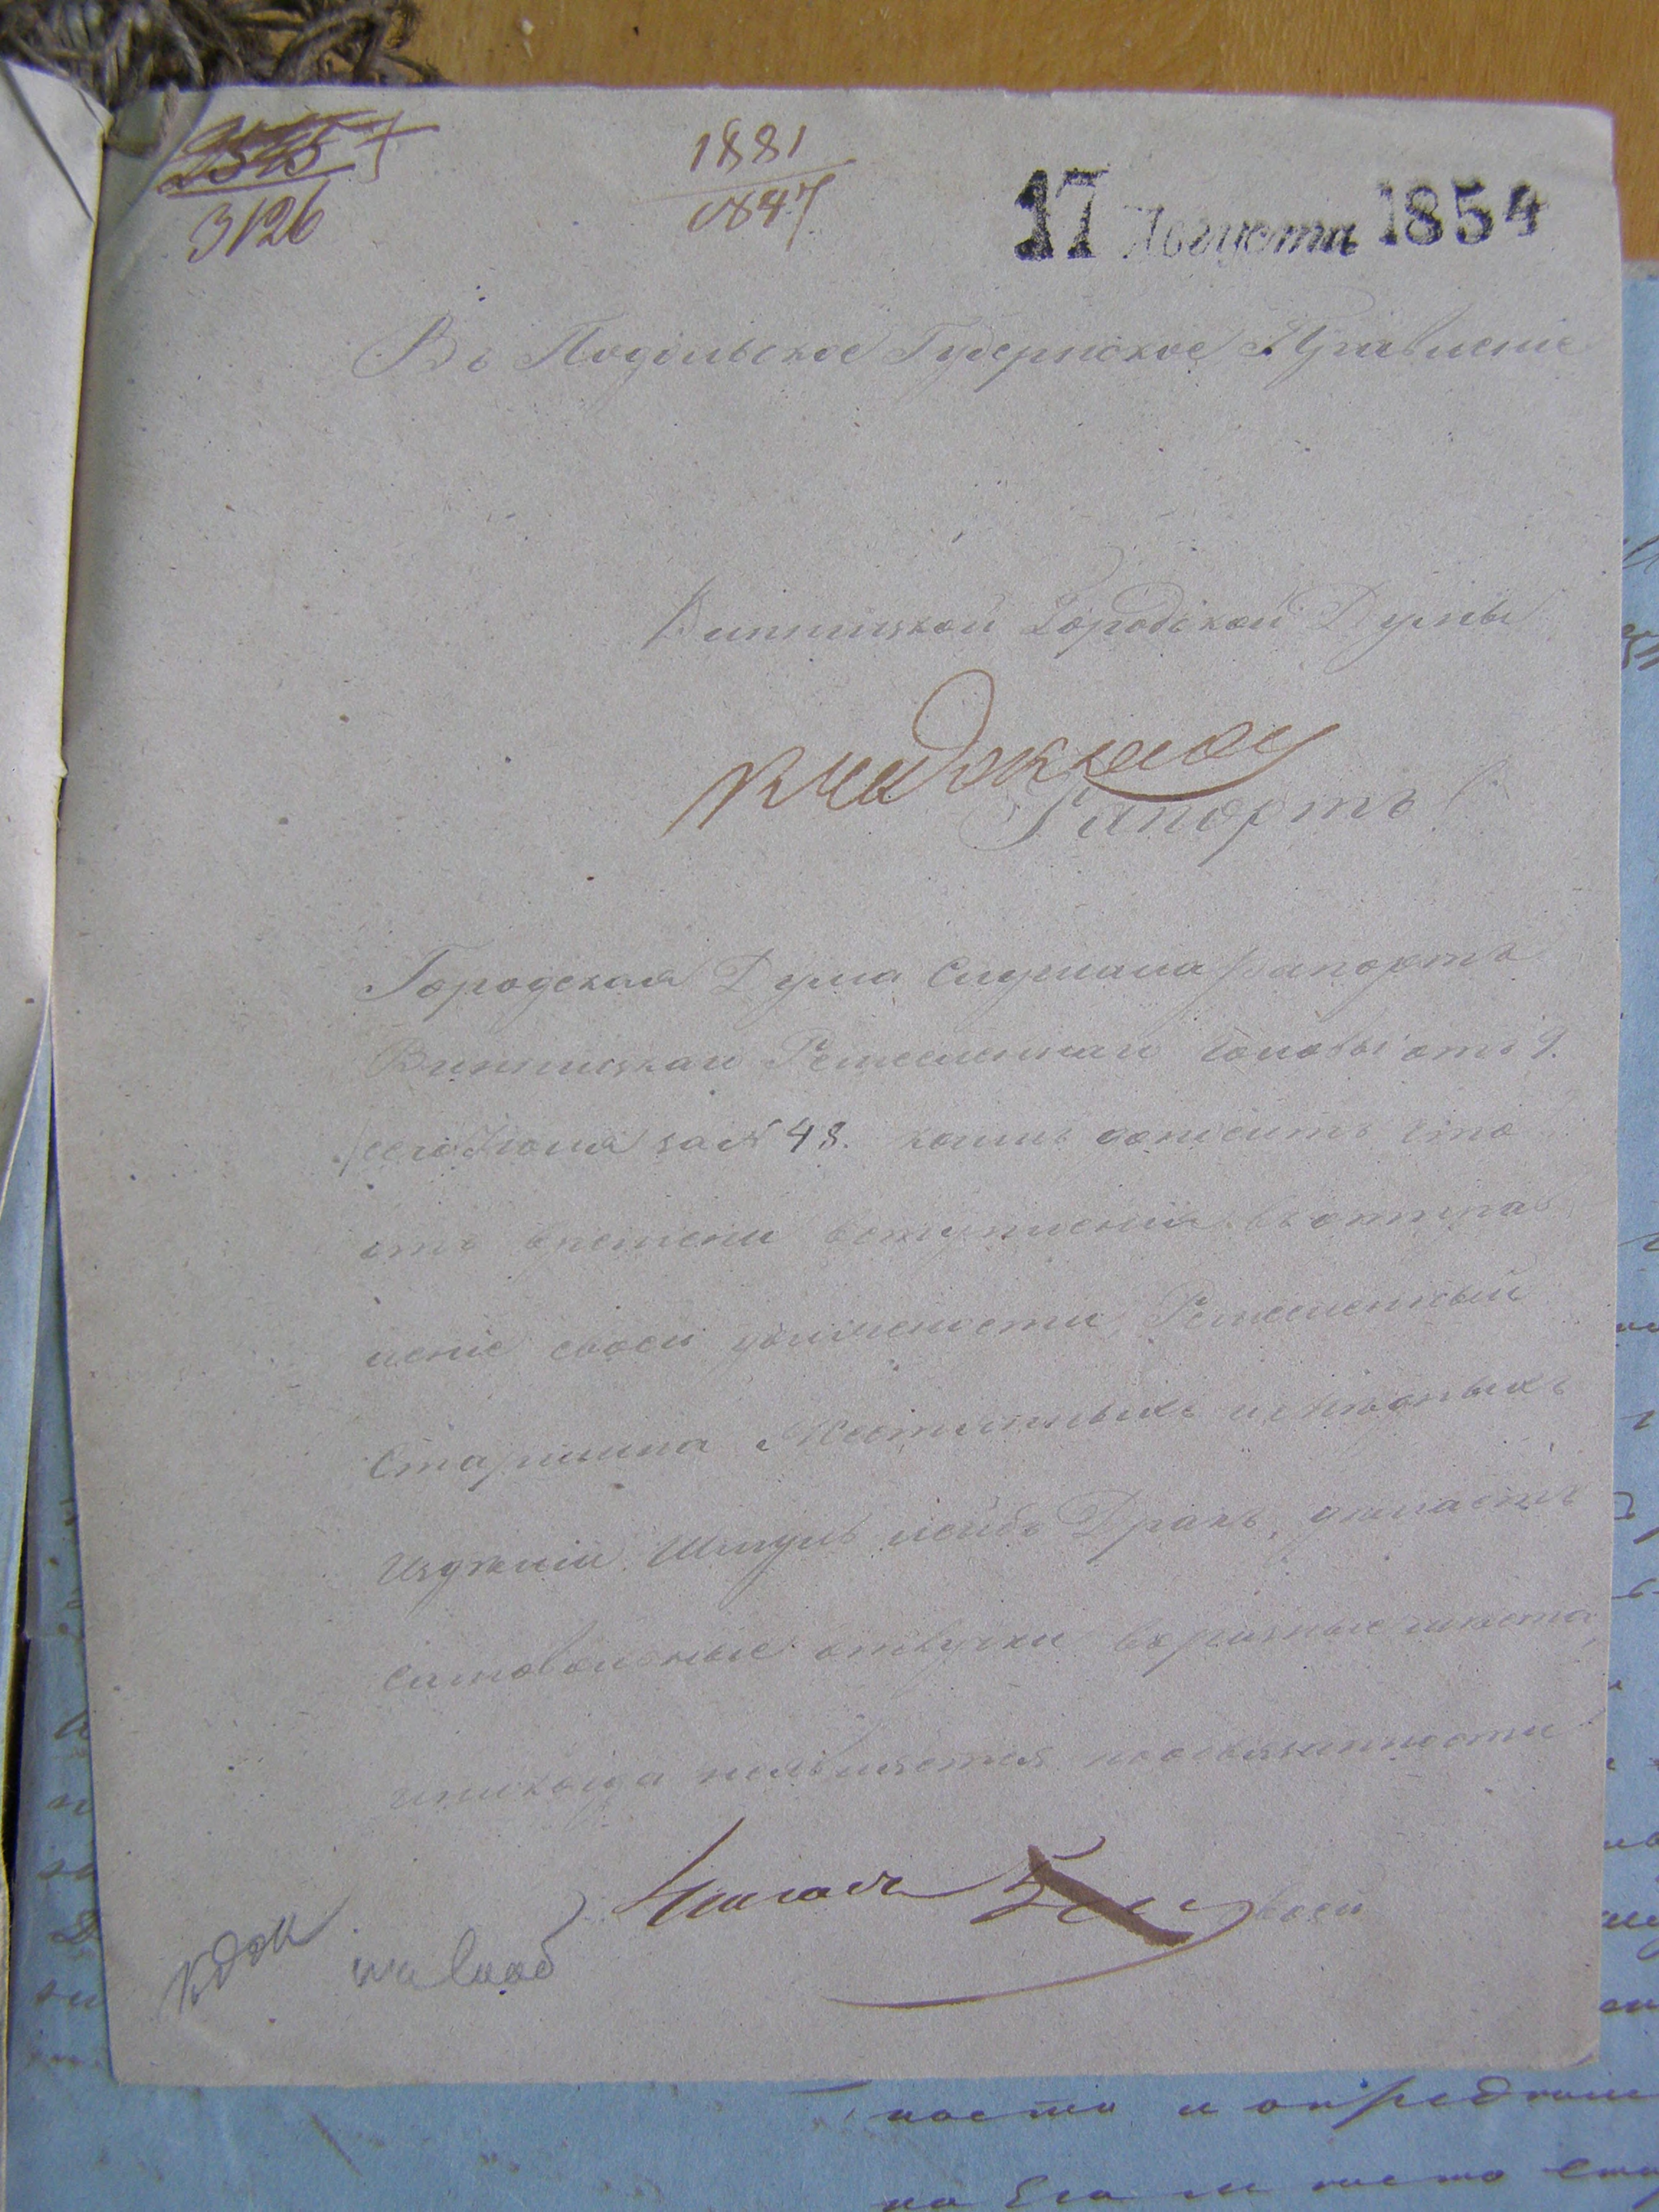 2545
3126
1881
1847
17 Августа 1854
Въ Подольское Губернское Правленіе
Винницкой Городской Думы
Рапортъ
Городская Дума слушала рапортъ
Винницкаго Ремесленнаго Головы отъ 9.
сего Іюля за № 48. коимъ доноситъ что
отъ времени вступленія въ отправ
леніе своей должности Ремесленный
Старшина Жестяныхъ и мѣдныхъ
Издѣлій Шмуль Лейбъ Дракъ, дѣлаетъ
самовольные отлучки въ разные мѣста,
и никогда неявляется по обязанности
своей